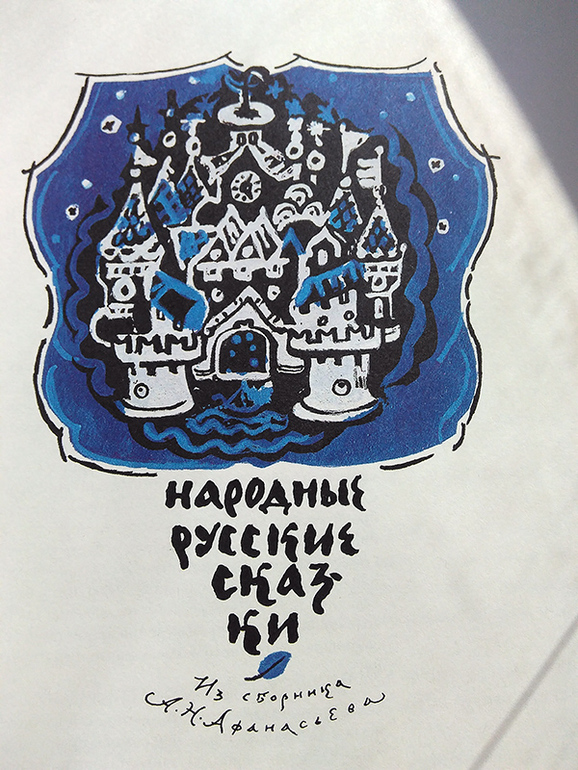 НАРОДНЫЕ
РУССКИЕ
СКАЗ-
КИ
Из сборника
А.Н.Афанасьева